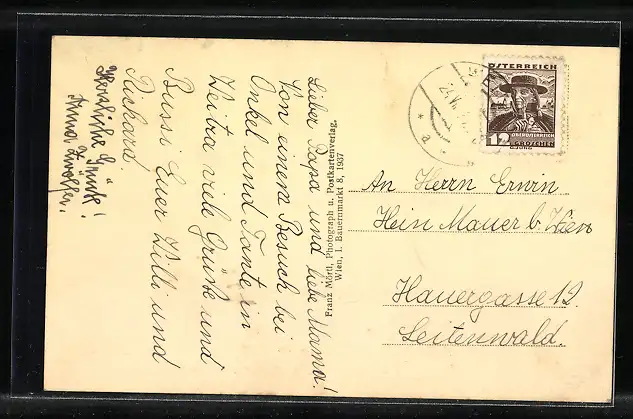 Lieber Papa und liebe Mama!
Von einem Besuch bei
Onkel und Tante in
Weitra viele Grüße und
Bussi Euer Willi und
Richard.
Herzliche Grüße!
Anna
Franz Mörtl, Photograph u. Postkartenverlag,
Wien, I. Bauernmarkt 8, 1937
ÖSTERREICH
OBERÖSTERREICH
12 GROSCHEN
An Herrn Erwin
Hein Mauer b. Wien
Hauergasse 12
Leitenwald.